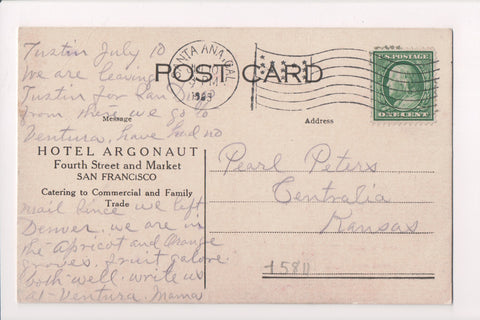 Tustin July 10
We are leaving
Tustin for San
from there we go to
Ventura. have had no
SANTA ANA, CAL.
POST CARD
U.S. POSTAGE
ONE CENT
Message
Address
HOTEL ARGONAUT
Fourth Street and Market
SAN FRANCISCO
Catering to Commercial and Family
Trade
mail since we left
Denver. we are in
the Apricot and Orange
Groves. fruit galore
both well. write us
at-Ventura. Mama
Pearl Peters
Centralia
Kansas
15811